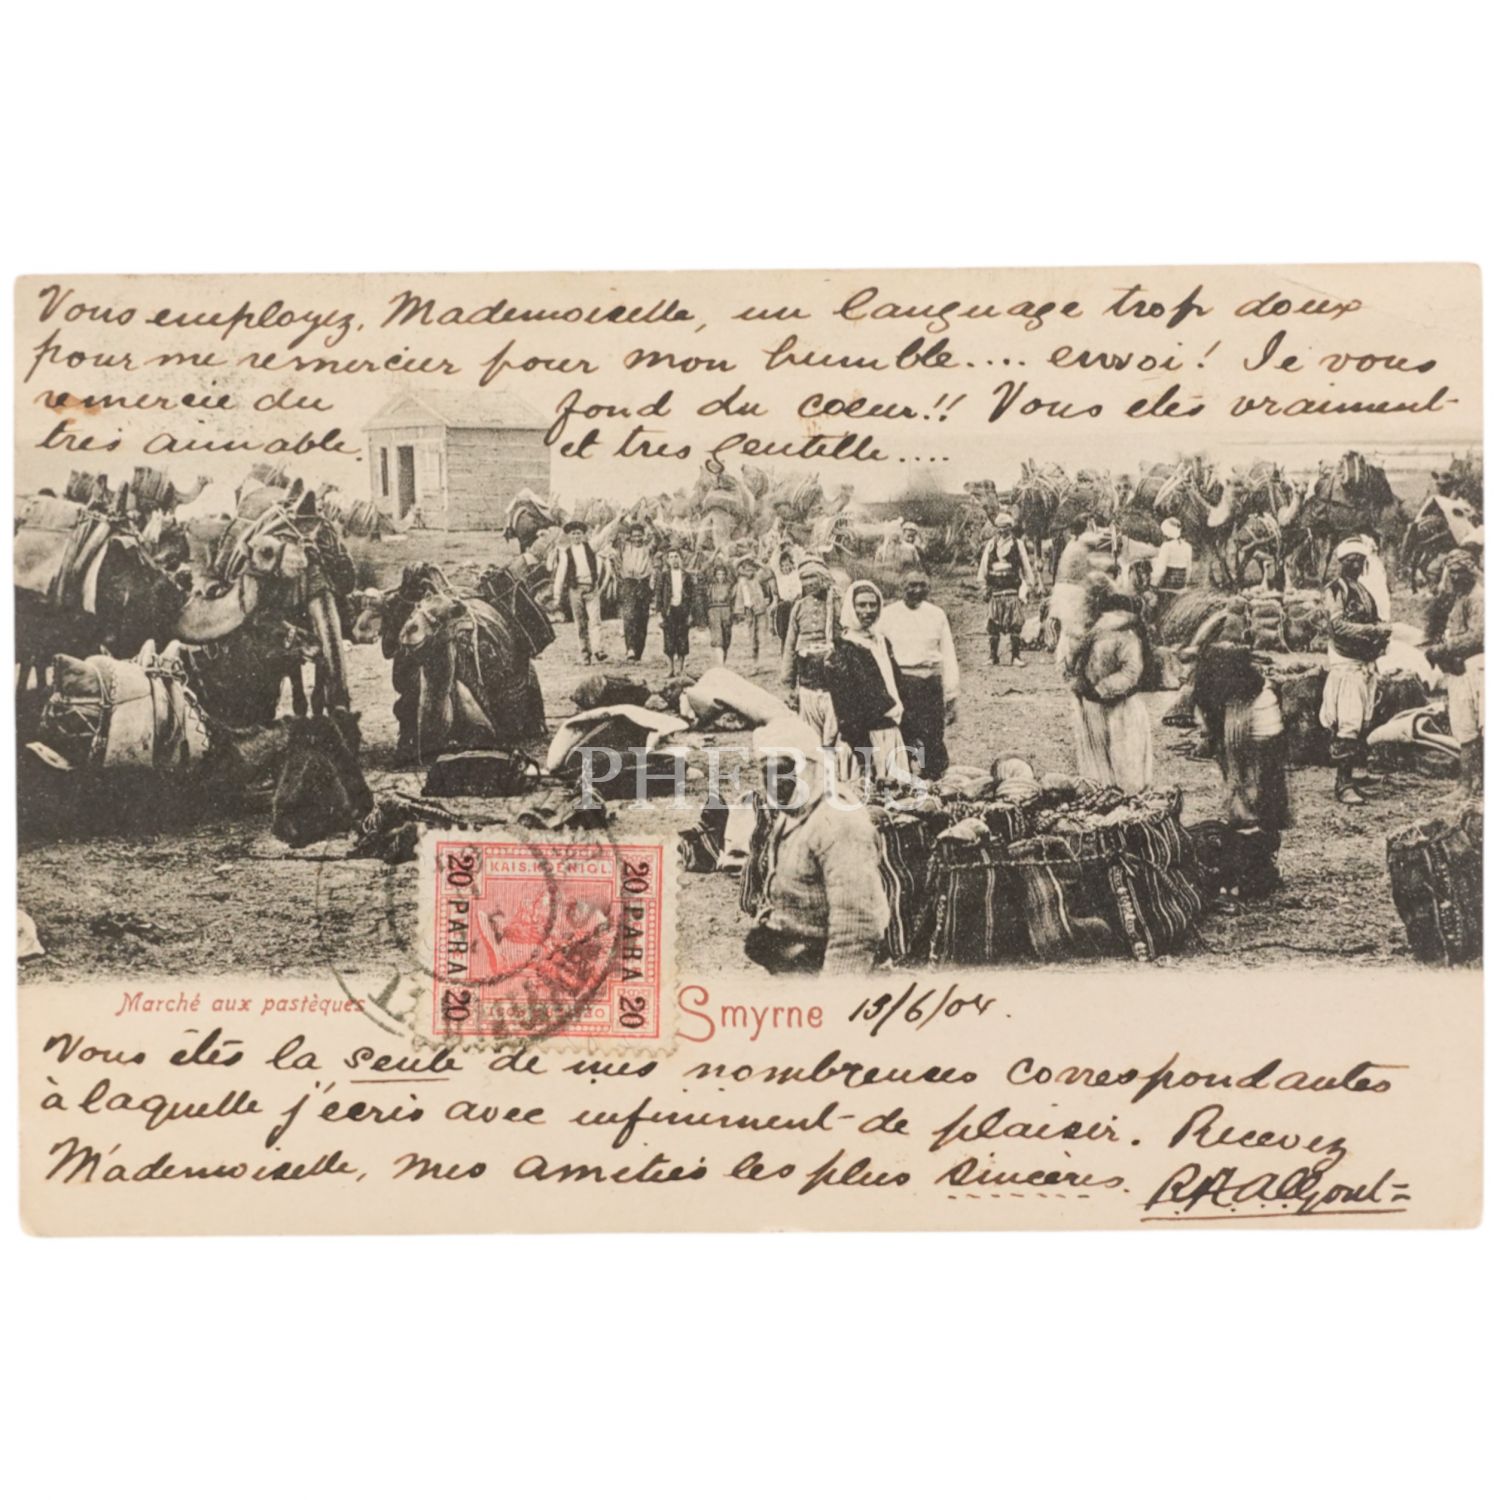 Vous employez, Mademoiselle, un language trop doux
pour me remercier pour mon humble.... envoi! Je vous
remercie du fond du coeur!! Vous etes vraiment
très aimable. et tres gentille....
PHEBUS
20 PARA 20
KAIS. KOENIGL.
20 PARA 20
Marché aux pastèques
Smyrne 13/6/04.
Vous êtes la seule de mes nombreuses correspondantes
à laquelle j'écris avec infiniment de plaisir. Recevez
Mademoiselle, mes amitiés les plus sincères.